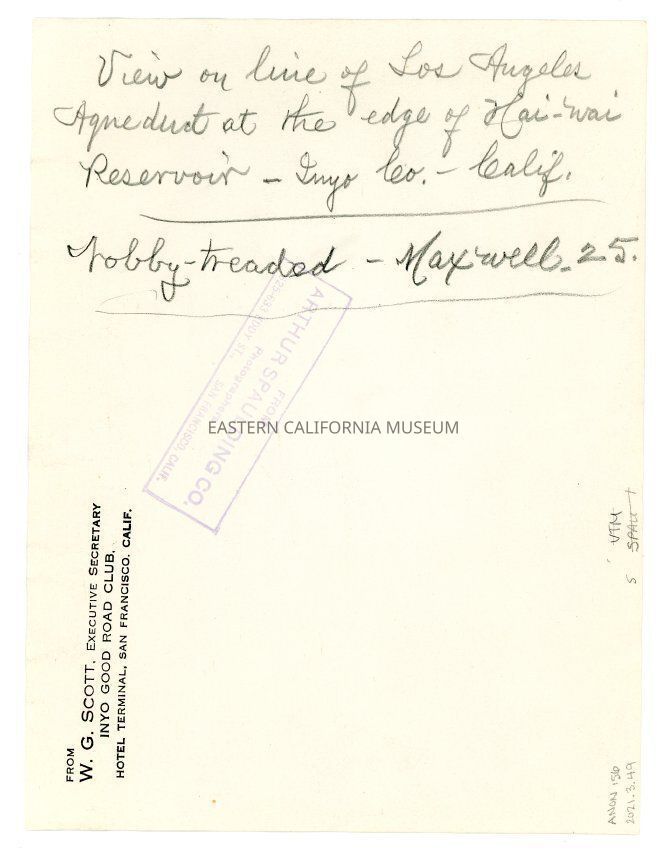 View on line of Los Angeles
Aqueduct at the edge of Hai-wai
Reservoir – Inyo Co. – Calif.
Nobby-treaded – Maxwell-25.
FROM
ARTHUR SPAULDING CO.
Photographers
625-633 EDDY ST.,
SAN FRANCISCO, CALIF.
EASTERN CALIFORNIA MUSEUM
FROM
W. G. SCOTT, EXECUTIVE SECRETARY
INYO GOOD ROAD CLUB,
HOTEL TERMINAL, SAN FRANCISCO, CALIF.
VTM
S
ANON 156
2021.3.49